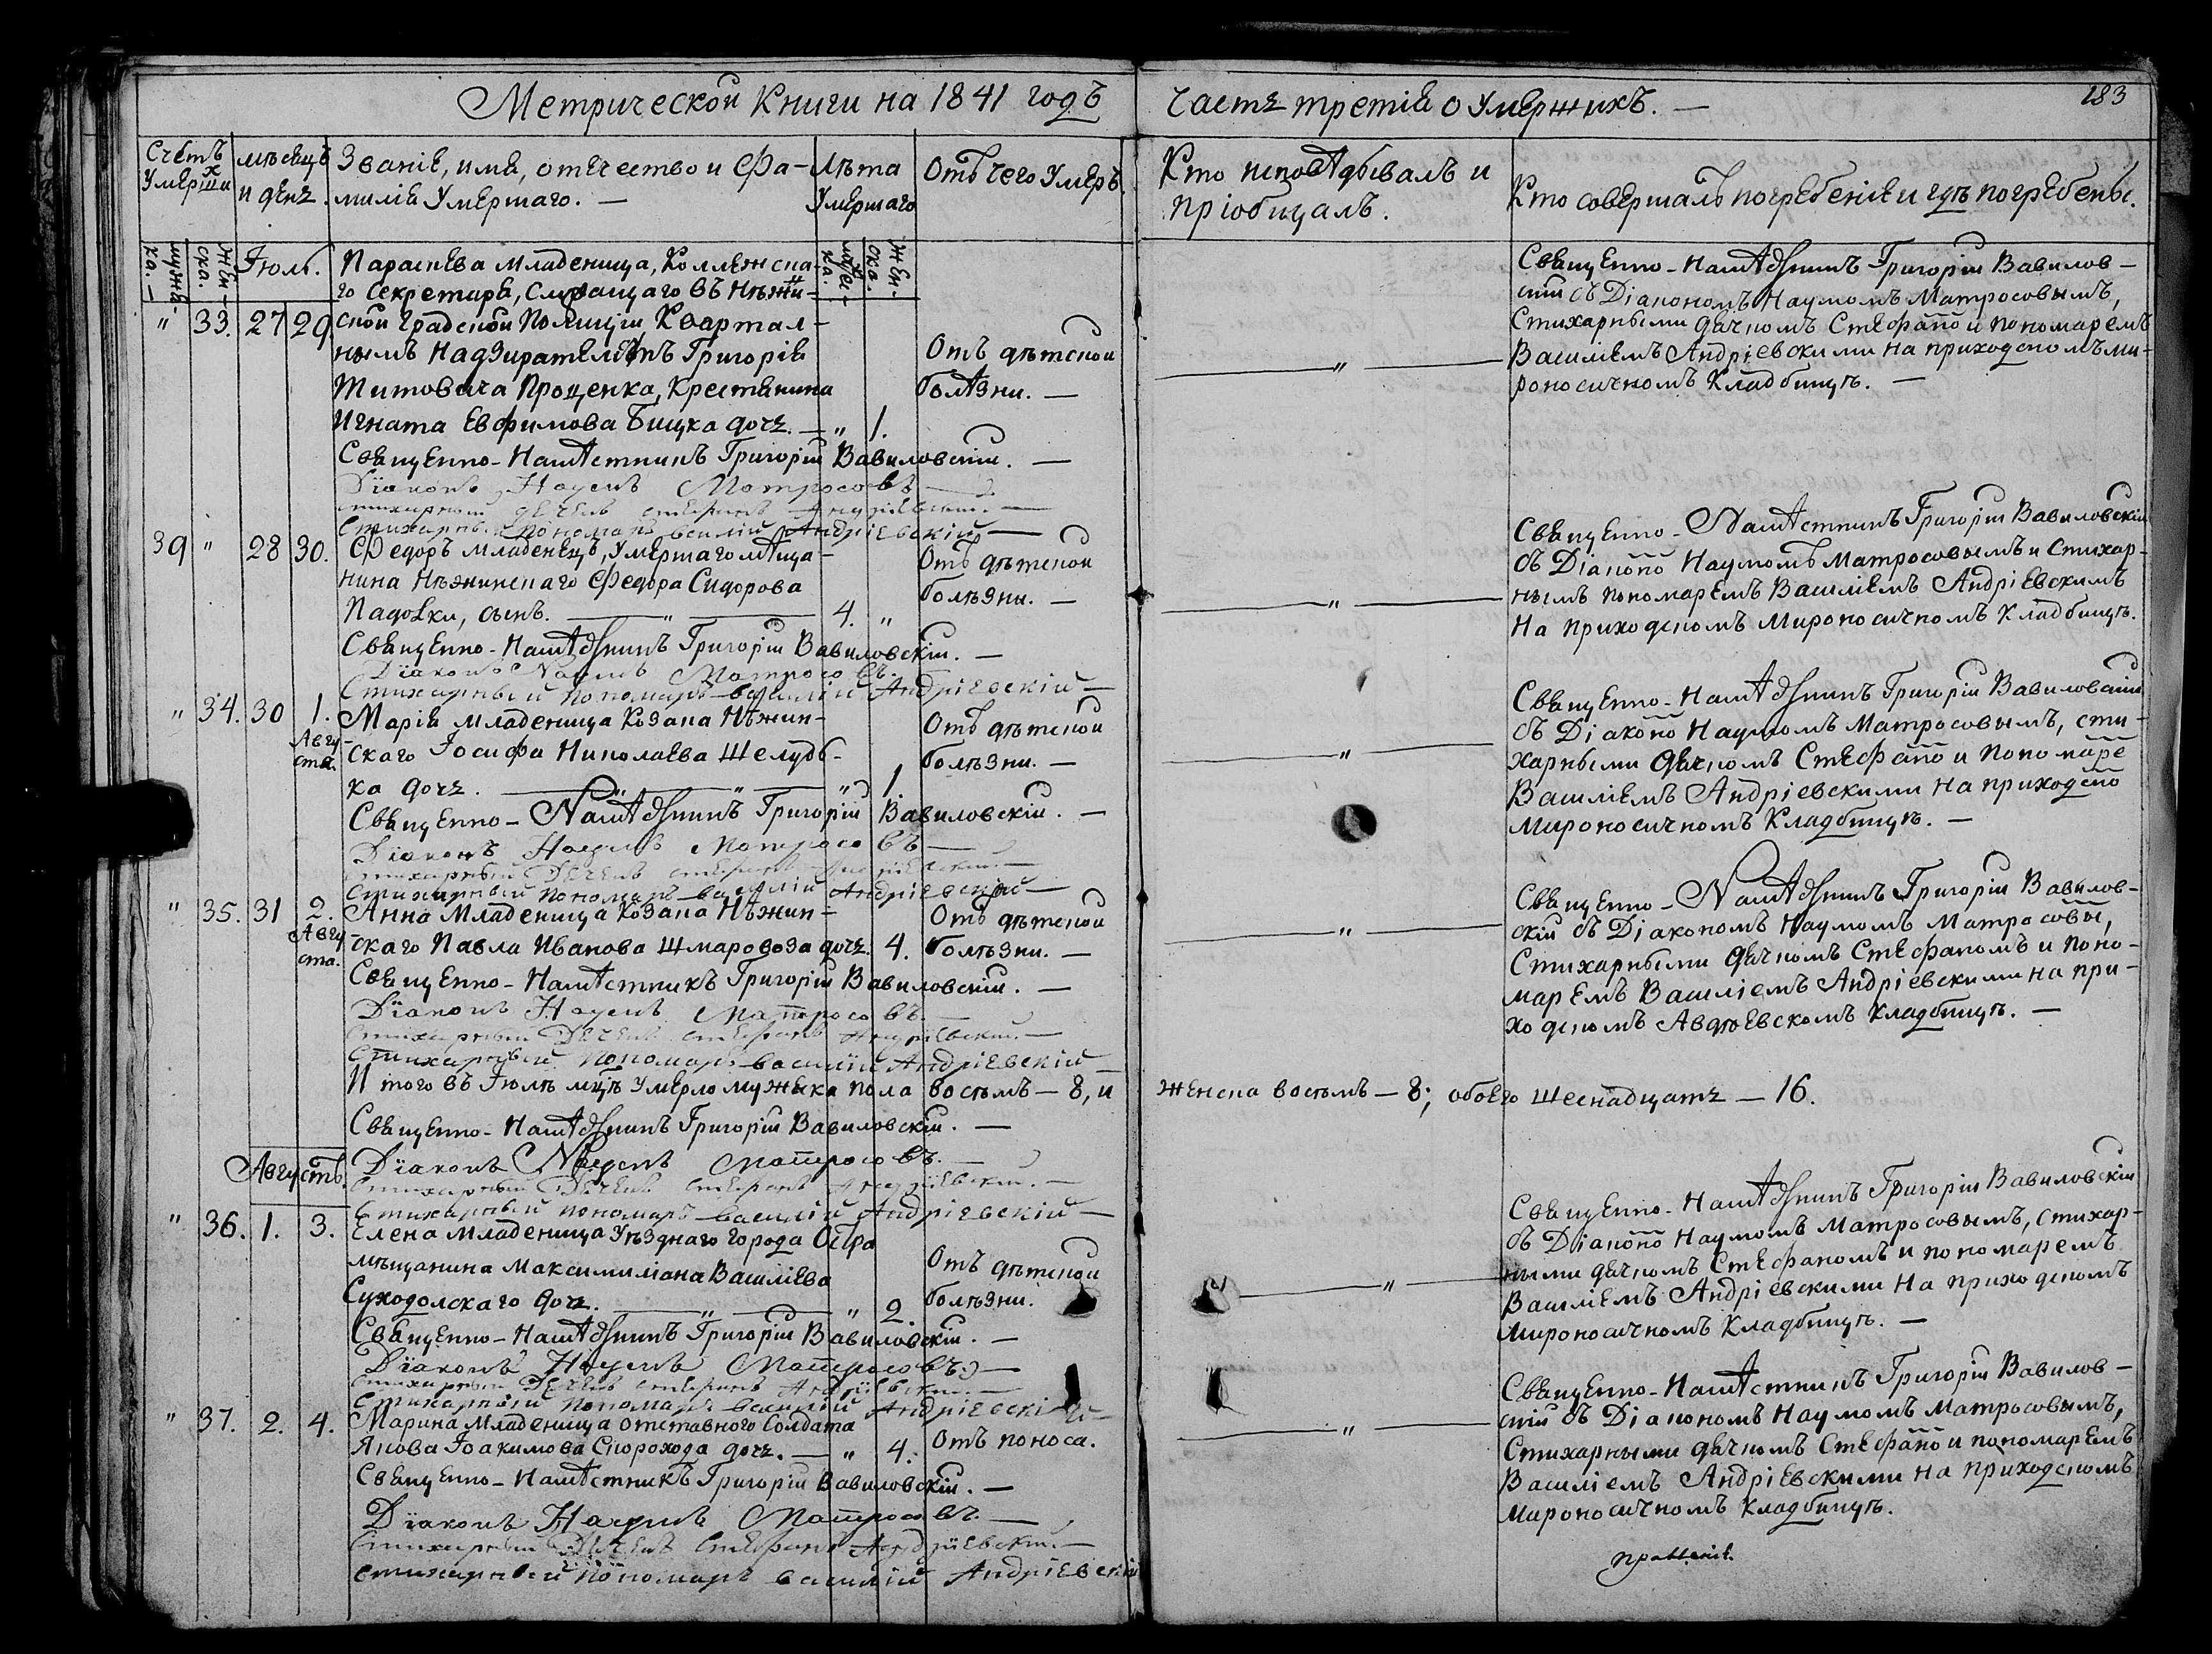 Метрической Книги на 1841 годъ
Часть третія о Умершихъ. —
183
Счетъ Умершихъ
мѣсецъ и день.
Званіе, имя, отечество и Фа-
милія Умершаго. —
Лѣта Умершаго
Отъ чего Умеръ.
Кто исповѣдывалъ и
пріобщалъ.
Кто совершалъ погребеніе и гдѣ погребены.
мужеска. —
женска.
Іюль.
мужеска.
женска.
Параскева младеница, Коллежска-
го Секретаря, Служащаго въ Нѣжи-
" 33. 27 29. ской Градской Полиціи Квартал-
нымъ Надзирателемъ Григорія
Титовича Проценка, Крестянина
Игната Евфимова Бицка дочь. — " 1.
Отъ дѣтской
болѣзни. —
"
Священно-Намѣстникъ Григорій Вавилов-
скій съ Діакономъ Наумомъ Матросовымъ,
Стихарными дячкомъ Стефано и пономаремъ
Василіемъ Андріевскими на приходскомъ ми-
роносичномъ Кладбищѣ. —
Священно-Намѣстникъ Григорій Вавиловскій. —
Діаконъ Наумъ Матросовъ —
стихарный дячекъ стефанъ Андріевскій. —
Стихарный пономарь василій Андріевскій —
39 " 28 30. Федоръ младенецъ, умершаго мѣща-
нина Нѣжинскаго Федора Сидорова
Падолки, сынъ. — " — 4. "
Отъ дѣтской
болѣзни. —
"
Священно-Намѣстникъ Григорій Вавиловскій
съ Діаконо Наумомъ Матросовымъ и Стихар-
нымъ пономаремъ Василіемъ Андріевскимъ
На приходскомъ Мироносичномъ Кладбищѣ.
Священно-Намѣстникъ Григорій Вавиловскій. —
Діаконъ Наумъ Матросовъ.
Стихарный пономарь василій Андріевскій —
" 34. 30 1. Августа. Марія младеница Козака Нѣжин-
скаго Іосифа Николаева Шелудь-
ка дочь. — " — " — " 1.
Отъ дѣтской
болѣзни. —
"
Священно-Намѣстникъ Григорій Вавиловскій
съ Діаконо Наумомъ Матросовымъ, сти-
харными дячкомъ Стефано и пономаре
Василіемъ Андріевскими на приходско
мироносичномъ Кладбищѣ. —
Священно-Намѣстникъ Григорій Вавиловскій. —
Діаконъ Наумъ Матросовъ —
стихарный Дячекъ стефанъ Андріевскій. —
Стихарный пономарь василій Андріевскій —
" 35. 31 2. Августа. Анна Младеница Козака Нѣжин-
скаго Павла Иванова Шмаровоза дочь. 4.
Отъ дѣтской
болѣзни. —
"
Священно-Намѣстникъ Григорій Вавилов-
скій съ Діакономъ Наумомъ Матросовы,
Стихарными дячкомъ Стефаномъ и поно-
маремъ Василіемъ Андріевскими на при-
ходскомъ Авдѣевскомъ кладбищѣ. —
Священно-Намѣстникъ Григорій Вавиловскій. —
Діаконъ Наумъ Матросовъ. —
стихарный Дячекъ стефанъ Андріевскій. —
Стихарный пономарь василій Андріевскій —
Итого въ Іюлѣ мцѣ умерло мужеска пола восемь — 8, и женска восемь — 8; обоего шеснадцать — 16.
Священно-Намѣстникъ Григорій Вавиловскій. —
Августъ.
Діаконъ Наумъ Матросовъ. —
стихарный Дячекъ стефанъ Андріевскій. —
Стихарный пономарь василій Андріевскій —
" 36. 1. 3. Елена младеница Уѣзднаго города Остра
мѣщанина Максимиліана Василіева
Суходолскаго дочь. — " — " 2.
Отъ дѣтской
болѣзни.
"
Священно-Намѣстникъ Григорій Вавиловскій
съ Діаконо Наумомъ Матросовымъ, стихар-
ными дячкомъ Стефаномъ и пономаремъ
Василіемъ Андріевскими на приходскомъ
мироносичномъ Кладбищѣ. —
Священно-Намѣстникъ Григорій Вавиловскій. —
Діаконъ Наумъ Матросовъ —
стихарный Дячекъ стефанъ Андріевскій. —
Стихарный пономарь василій Андріевскій —
" 37. 2. 4. Марина Младеница отставного Солдата
Якова Іоакимова Скорохода дочь. — " 4.
Отъ поноса.
"
Священно-Намѣстникъ Григорій Вавилов-
скій съ Діакономъ Наумомъ Матросовымъ,
Стихарными дячкомъ Стефано и пономаремъ
Василіемъ Андріевскими на приходскомъ
мироносичномъ кладбищѣ.
Священно-Намѣстникъ Григорій Вавиловскій. —
Діаконъ Наумъ Матросовъ. —
Стихарный Дячекъ Стефанъ Андріевскій. —
стихарный пономарь василій Андріевскій